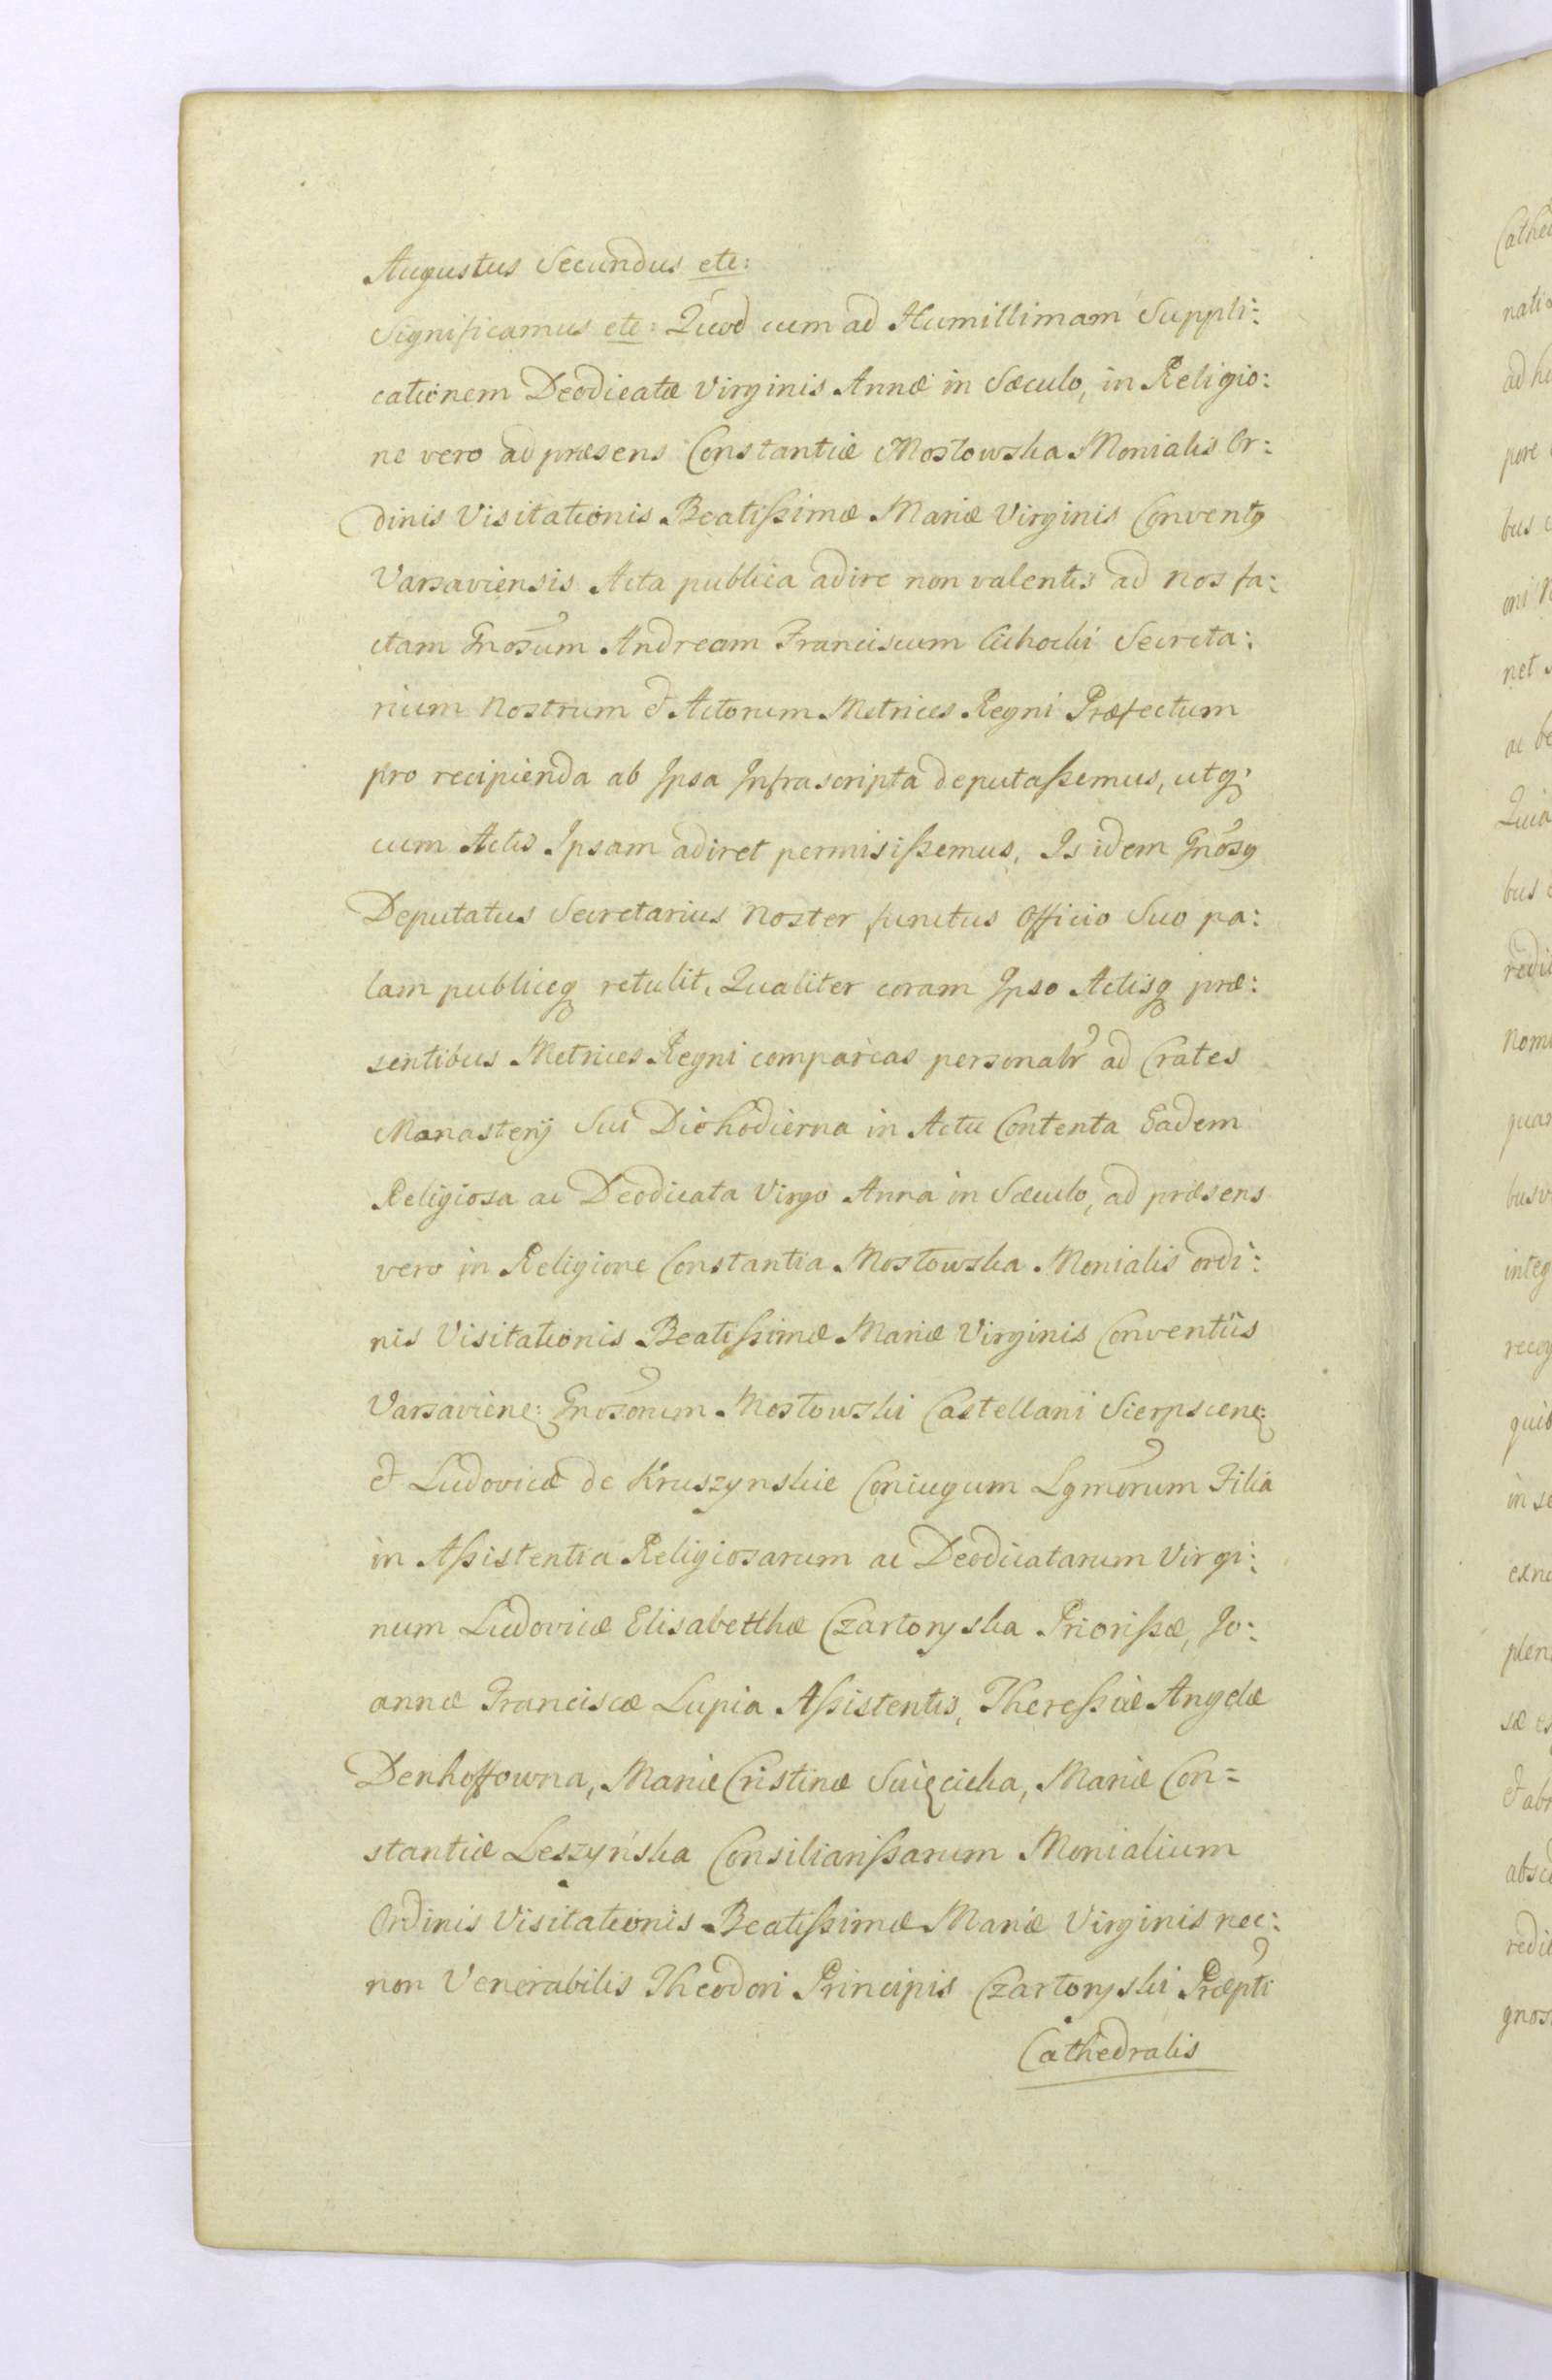 Augustus Secundus etc:
Significamus etc: Quod cum ad Humillimam Suppli:
cationem Deodicatæ Virginis Annæ in Sæculo, in Religio:
ne vero ad præsens Constantiæ Mostowska Monialis Or:
dinis Visitationis Beatißimæ Mariæ Virginis Conventꝯ
Varsaviensis Acta publica adire non valentis ad nos fa:
ctam Gnosum Andream Franciscum Cichocki Secreta:
rium Nostrum & Actorum Metrices Regni Præfectum
pro recipienda ab Ipsa Infrascripta deputaßemus, utq;
cum Actis Ipsam adiret permisißemus, Is idem Gnosꝯ
Deputatus Secretarius Noster functus Officio Suo pa:
lam publiceq; retulit, Qualiter coram Ipso Actisq; præ:
sentibus Metrices Regni comparens personalr ad Crates
Monasterij Sui Die hodierna in Actu Contenta Eadem
Religiosa ac Deodicata Virgo Anna in Sæculo, ad præsens
vero in Religione Constantia Mostowska Monialis ordi:
nis Visitationis Beatißimæ Mariæ Virginis Conventûs
Varsaviene: Gnosorum Mostowski Castellani Sierpscene:
& Ludovicæ de Kruszynskie Coniugum Lgmorum Filia
in Aßistentia Religiosarum ac Deodicatarum Virgi:
num Ludovicæ Elisabetthæ Czartoryska Priorißæ, Jo:
annæ Franciscæ Lupia Aßistentis, Thereßiæ Angelæ
Denhoffowna, Mariæ Cristinæ Swięcicka, Mariæ Con=
stantiæ Leszyńska Consiliarißarum Monialium
Ordinis Visitationis Beatißimæ Mariæ Virginis nec:
non Venerabilis Theodori Principis Czartoryski Præpti
Cathedralis